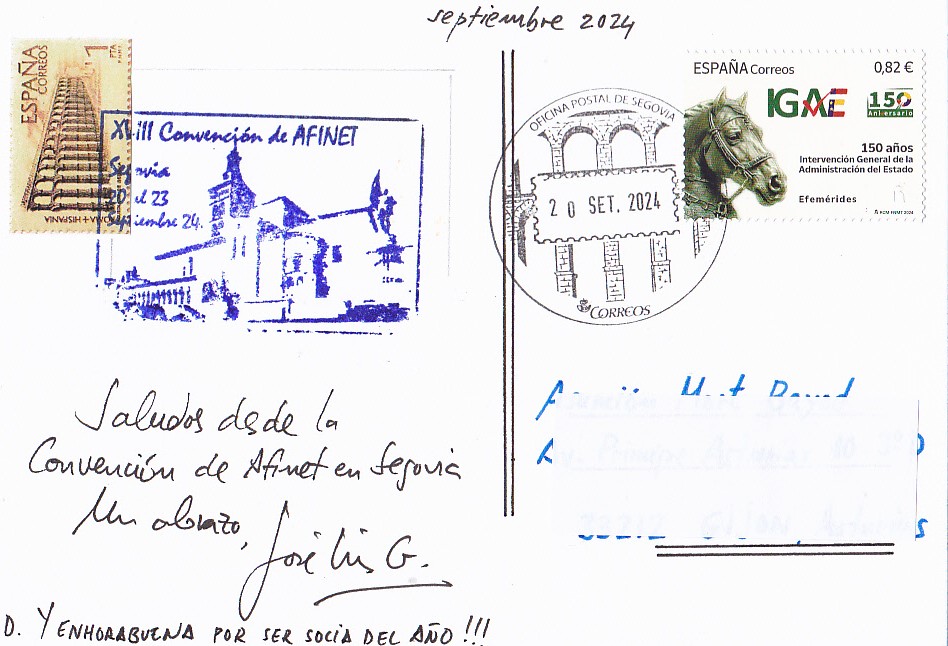 septiembre 2024
ESPAÑA
CORREOS
1
PTA
ROMA + HISPANIA
XVIII Convención de AFINET
Segovia
20 al 23
septiembre 24.
OFICINA POSTAL DE SEGOVIA
20 SET. 2024
CORREOS
ESPAÑA Correos
0,82 €
IGAE
150
Aniversario
150 años
Intervención General de la
Administración del Estado
Efemérides
RCM-FNMT 2024
Saludos desde la
Convención de Afinet en Segovia
Un abrazo,
José Luis G.
D. Y ENHORABUENA POR SER SOCIA DEL AÑO !!!